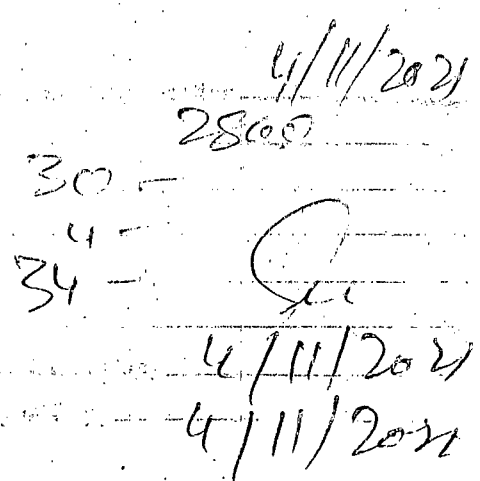 4/11/2021
2800
30 -
4 -
34 -
4/11/2021
4/11/2021